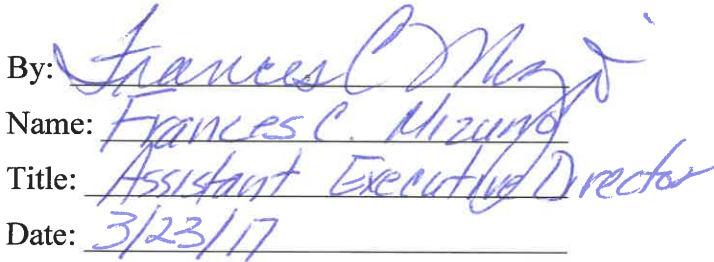 By: Frances C Mizuno
Name: Frances C. Mizuno
Title: Assistant Executive Director
Date: 3/23/17